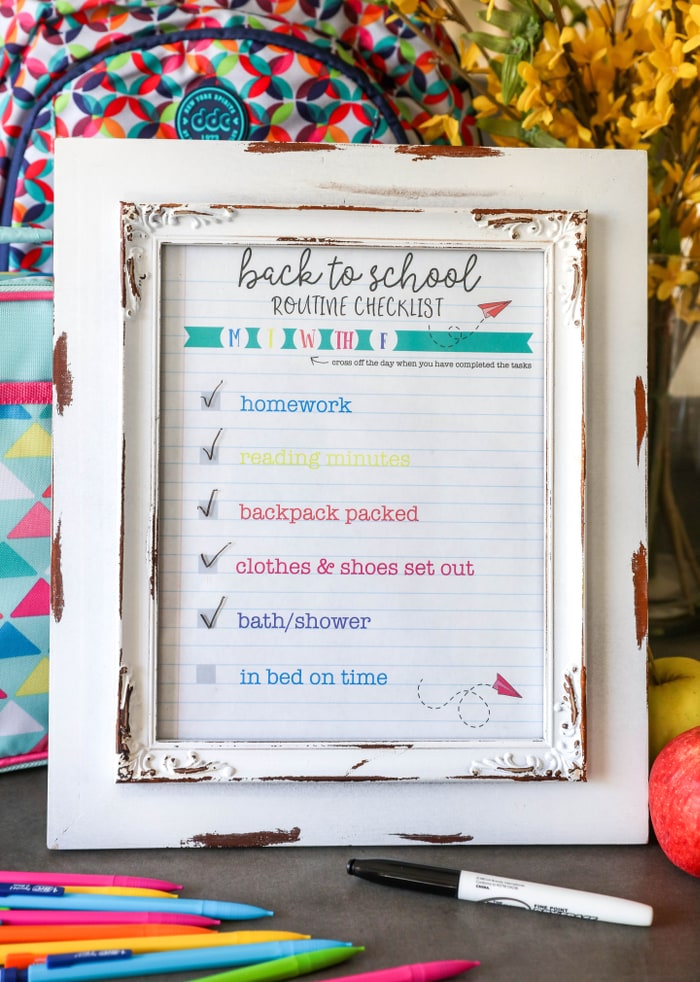 NEW YORK SPIRIT
ddc
back to school
ROUTINE CHECKLIST
M T W TH F
cross off the day when you have completed the tasks
homework
reading minutes
backpack packed
clothes & shoes set out
bath/shower
in bed on time
FINE POINT